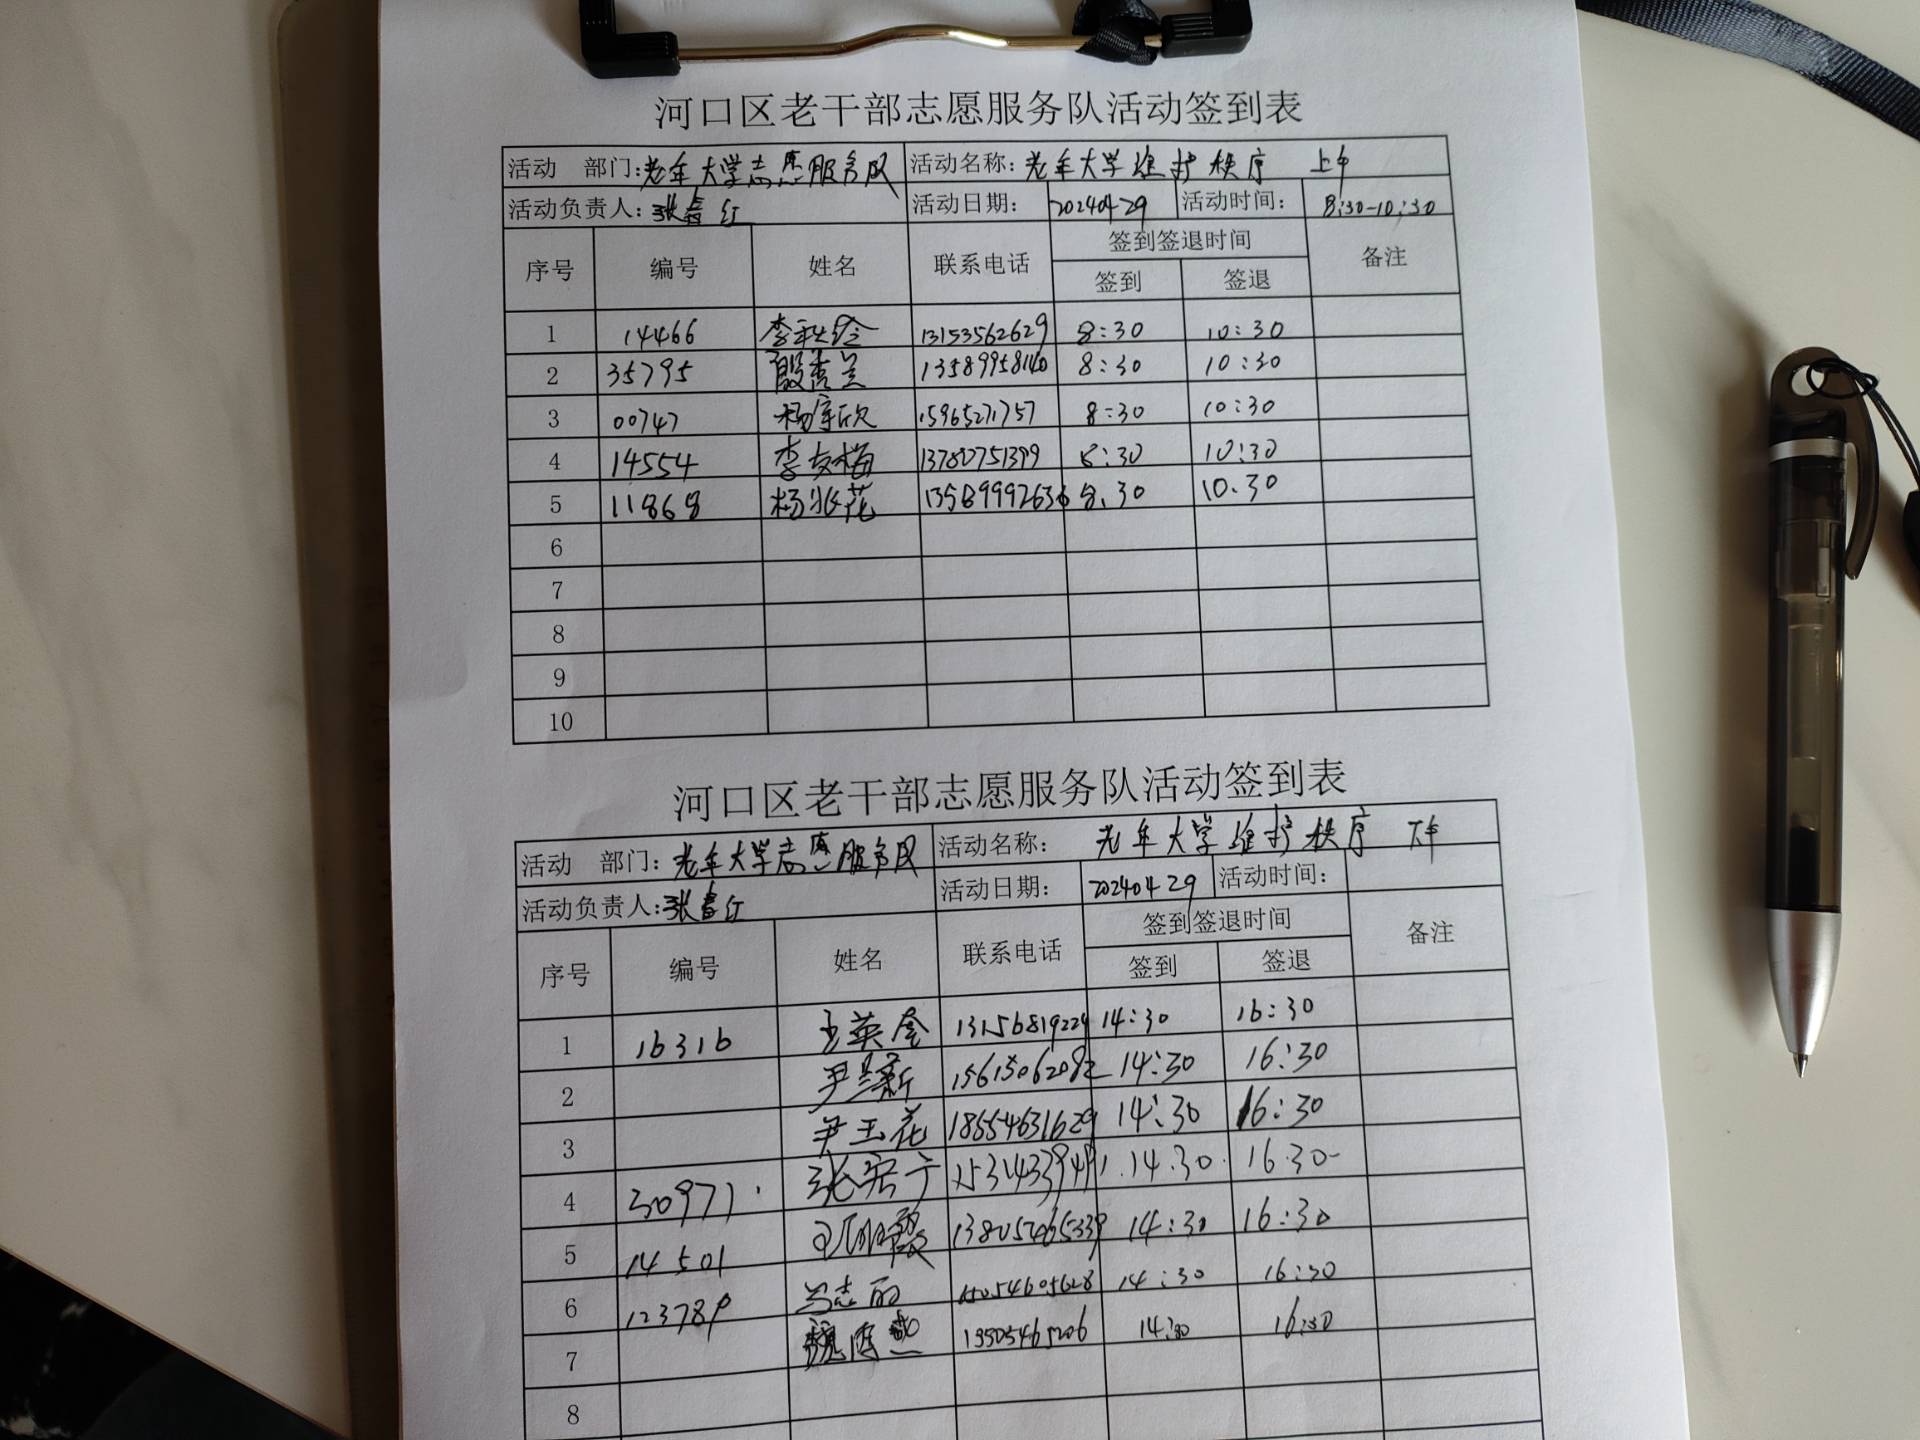 河口区老干部志愿服务队活动签到表
活动 部门:老年大学志愿服务队 活动名称:老年大学维护秩序 上午
活动负责人:张春红 活动日期: 20240429 活动时间: 8:30-10:30
序号 编号 姓名 联系电话 签到签退时间 备注
签到 签退
1 14466 13153562629 8:30 10:30
2 35795 殷秀兰 13589958140 8:30 10:30
3 00747 杨宇欣 15965271757 8:30 10:30
4 14554 李友梅 13780751399 8:30 10:30
5 11868 杨水花 13589992636 8.30 10.30
6
7
8
9
10
河口区老干部志愿服务队活动签到表
活动 部门:老年大学志愿服务队 活动名称: 老年大学维护秩序 下午
活动负责人:张春红 活动日期: 20240429 活动时间:
序号 编号 姓名 联系电话 签到签退时间 备注
签到 签退
1 16316 13156819229 14:30 16:30
2 尹兰新 15615062082 14:30 16:30
3 尹玉花 18554631629 14:30 16:30
4 30971 14.30. 16.30-
5 14501 14:30 16:30
6 冯志丽 15054605628 14:30 16:30
7 13505465206 14:30 16:30
8